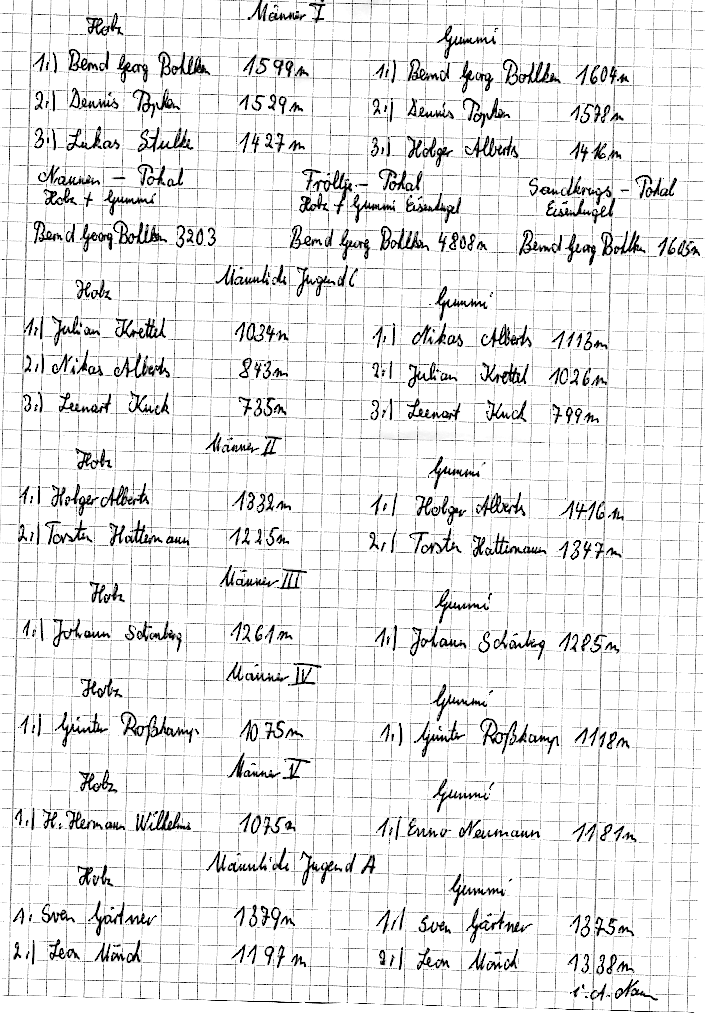 Männer I
Holz Gummi
1.) Bernd Georg Bohlken 1599m 1.) Bernd Georg Bohlken 1604m
2.) Dennis Popken 1529m 2.) Dennis Popken 1578m
3.) Lukas Stulke 1427m 3.) Holger Alberts 1416m
Männer - Pokal Frölje - Pokal Sandkrugs - Pokal
Holz + Gummi Holz + Gummi Eisenkugel Eisenkugel
Bernd Georg Bohlken 3203 Bernd Georg Bohlken 4808m Bernd Georg Bohlken 1605m
Männliche Jugend C
Holz Gummi
1.) Julian Krettel 1034m 1.) Nikas Alberts 1113m
2.) Nikas Alberts 843m 2.) Julian Krettel 1026m
3.) Leenart Kuck 735m 3.) Leenart Kuck 799m
Männer II
Holz Gummi
1.) Holger Alberts 1332m 1.) Holger Alberts 1416m
2.) Torsten Hattermann 1225m 2.) Torsten Hattermann 1347m
Männer III
Holz Gummi
1.) Johann Schönberg 1261m 1.) Johann Schönberg 1285m
Männer IV
Holz Gummi
1.) Günter Roßkamp 1075m 1.) Günter Roßkamp 1118m
Männer V
Holz Gummi
1.) H. Hermann Wilhelms 1075m 1.) Enno Neumann 1181m
Männliche Jugend A
Holz Gummi
1. Sven Gärtner 1379m 1.) Sven Gärtner 1375m
2.) Leon Mönch 1197m 2.) Leon Mönch 1338m
i. A.